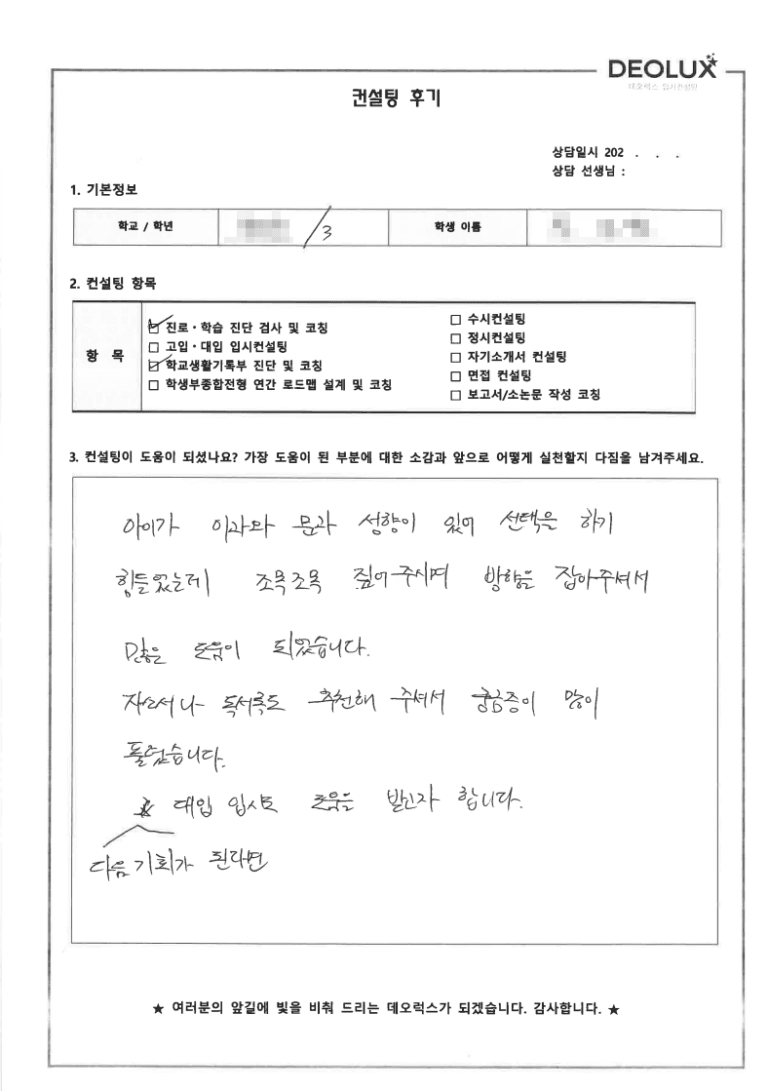 DEOLUX
데오럭스 입시컨설팅
컨설팅 후기
상담일시 202 . . .
상담 선생님 :
1. 기본정보
학교 / 학년 /3 학생 이름
2. 컨설팅 항목
항 목
진로·학습 진단 검사 및 코칭
고입·대입 입시컨설팅
학교생활기록부 진단 및 코칭
학생부종합전형 연간 로드맵 설계 및 코칭
수시컨설팅
정시컨설팅
자기소개서 컨설팅
면접 컨설팅
보고서/소논문 작성 코칭
3. 컨설팅이 도움이 되셨나요? 가장 도움이 된 부분에 대한 소감과 앞으로 어떻게 실천할지 다짐을 남겨주세요.
아이가 이과와 문과 성향이 있어 선택을 하기
힘들었는데 조목조목 짚어주시며 방향을 잡아주셔서
많은 도움이 되었습니다.
자소서나 독서록도 추천해 주셔서 궁금증이 많이
풀렸습니다.
대입 입시도 도움을 받고자 합니다.
다음 기회가 된다면
★ 여러분의 앞길에 빛을 비춰 드리는 데오럭스가 되겠습니다. 감사합니다. ★